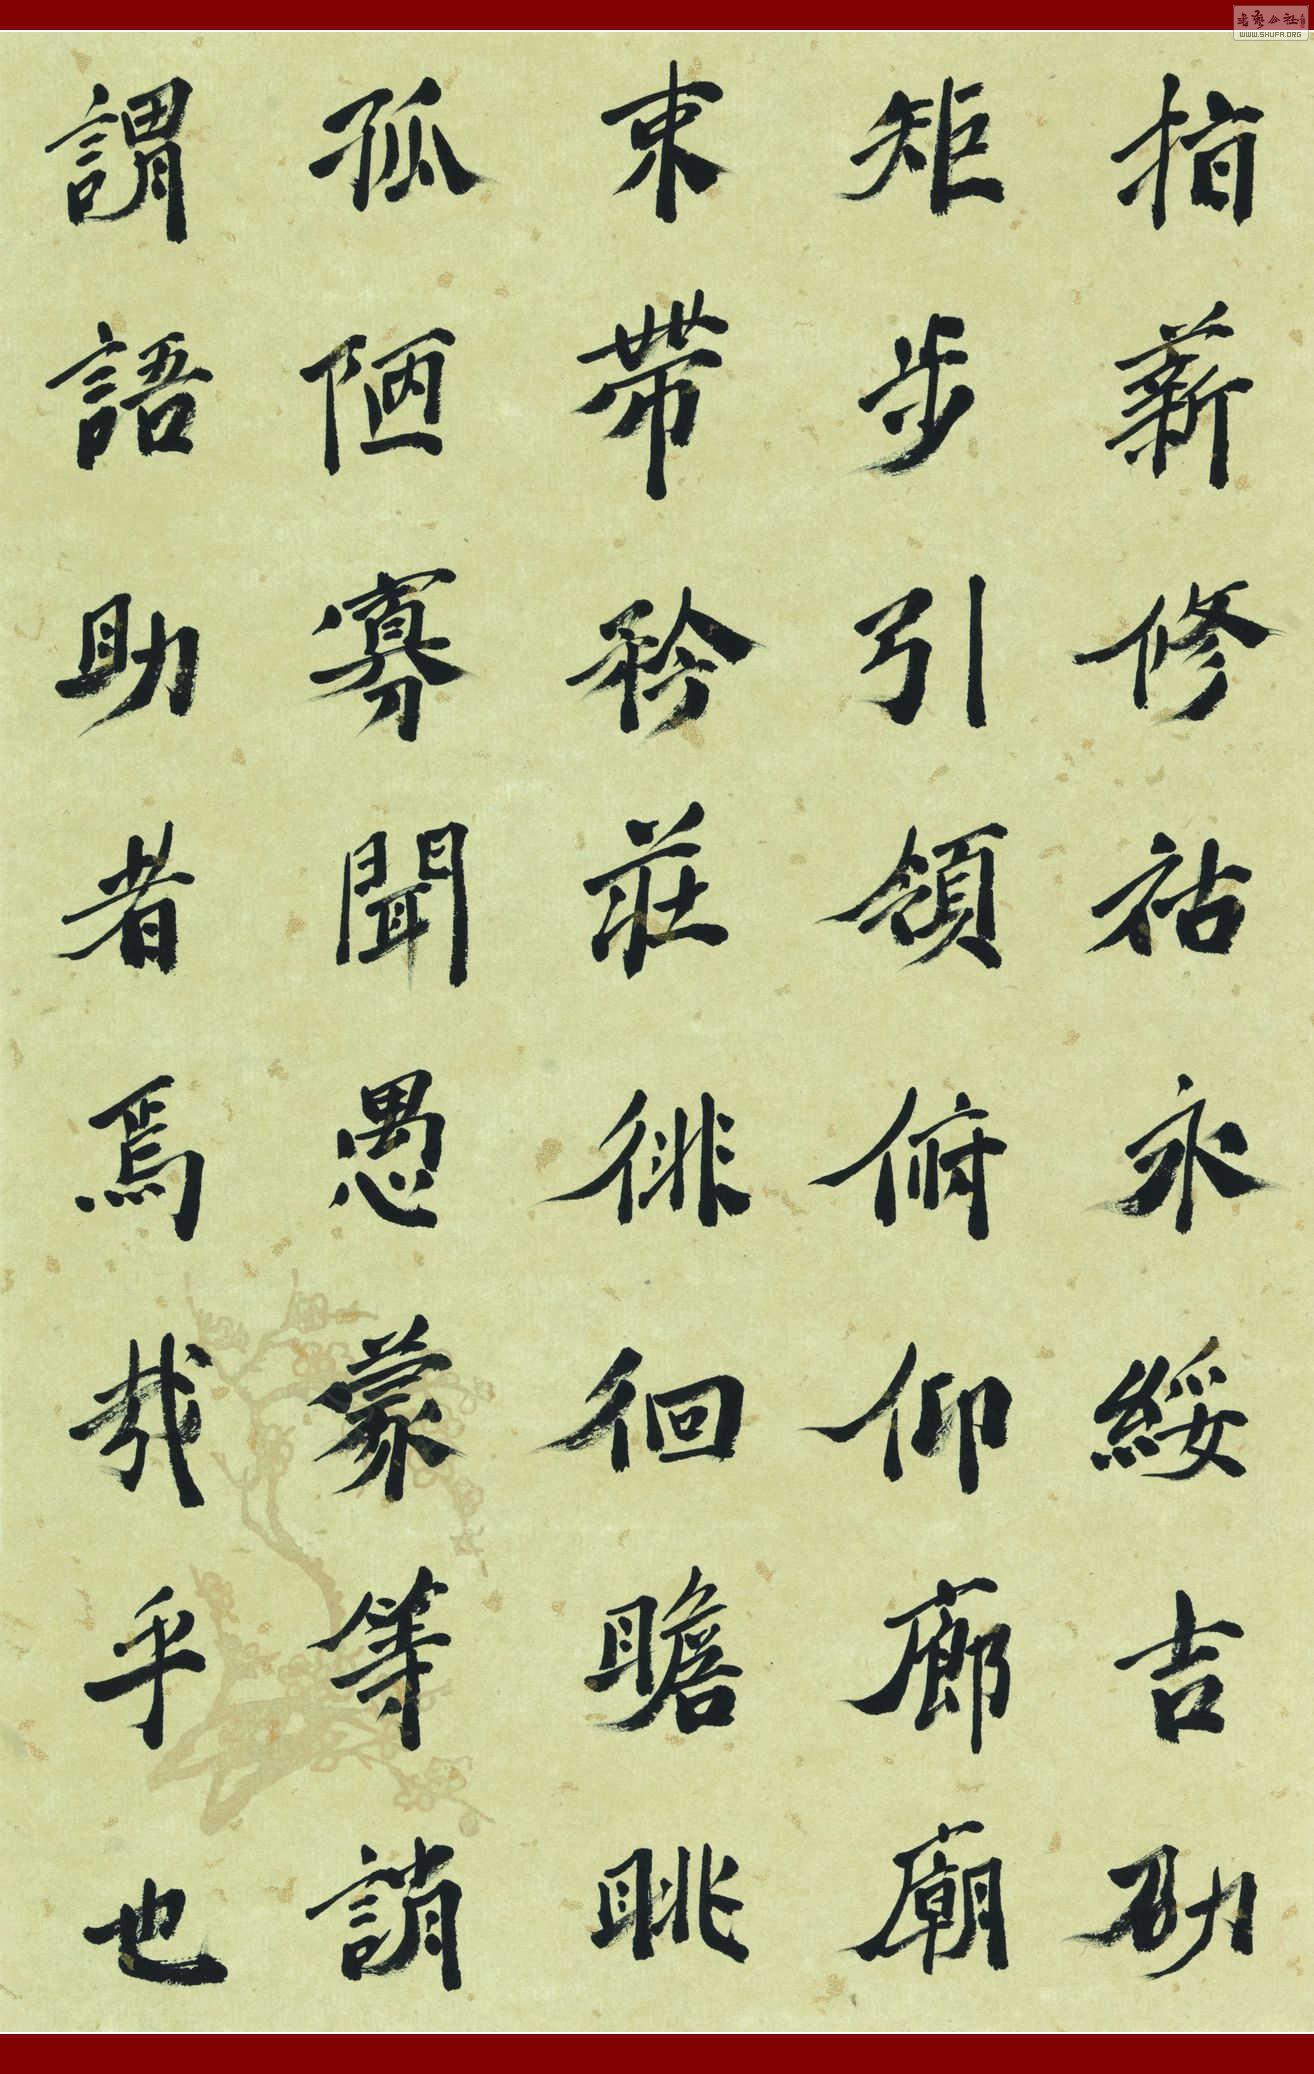 指薪修祜永綏吉劭
矩步引領俯仰廊廟
束帶矜莊徘徊瞻眺
孤陋寡聞愚蒙等誚
謂語助者焉哉乎也
WWW.SHUFA.ORG